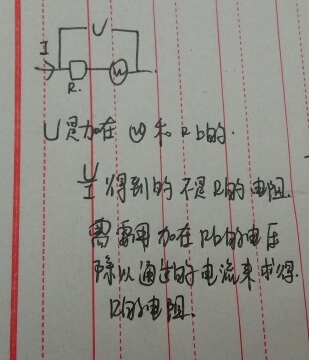 U
I
R.
U是加在 M 和 R上的.
U/I 得到的不是R的电阻.
需要用加在R上的电压
除以通过的电流来求得.
R的电阻.